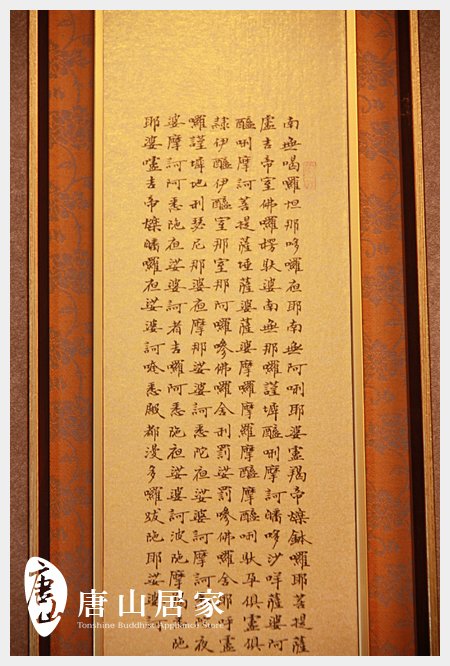 南無喝囉怛那哆囉夜耶南無阿唎耶婆盧羯帝爍缽囉耶菩提薩
盧吉帝室佛囉楞馱婆南無那囉謹墀醯唎摩訶皤哆沙咩薩婆阿
醯唎摩訶菩提薩埵薩婆薩婆摩囉摩囉摩醯摩醯唎馱孕俱盧俱
隸伊醯伊醯室那室那阿囉嘇佛囉舍利罰娑罰嘇佛囉舍耶呼盧
囉謹墀地利瑟尼那婆夜摩那娑婆訶悉陀夜娑婆訶摩訶夜
婆摩訶阿悉陁夜娑婆訶者吉囉阿悉陁夜娑婆訶波陁摩陁
耶婆嚧吉帝爍皤囉夜娑婆訶唵悉殿都漫多囉跋陁耶娑婆
唐山
唐山居家
Tonshine Buddhist Appliance Store